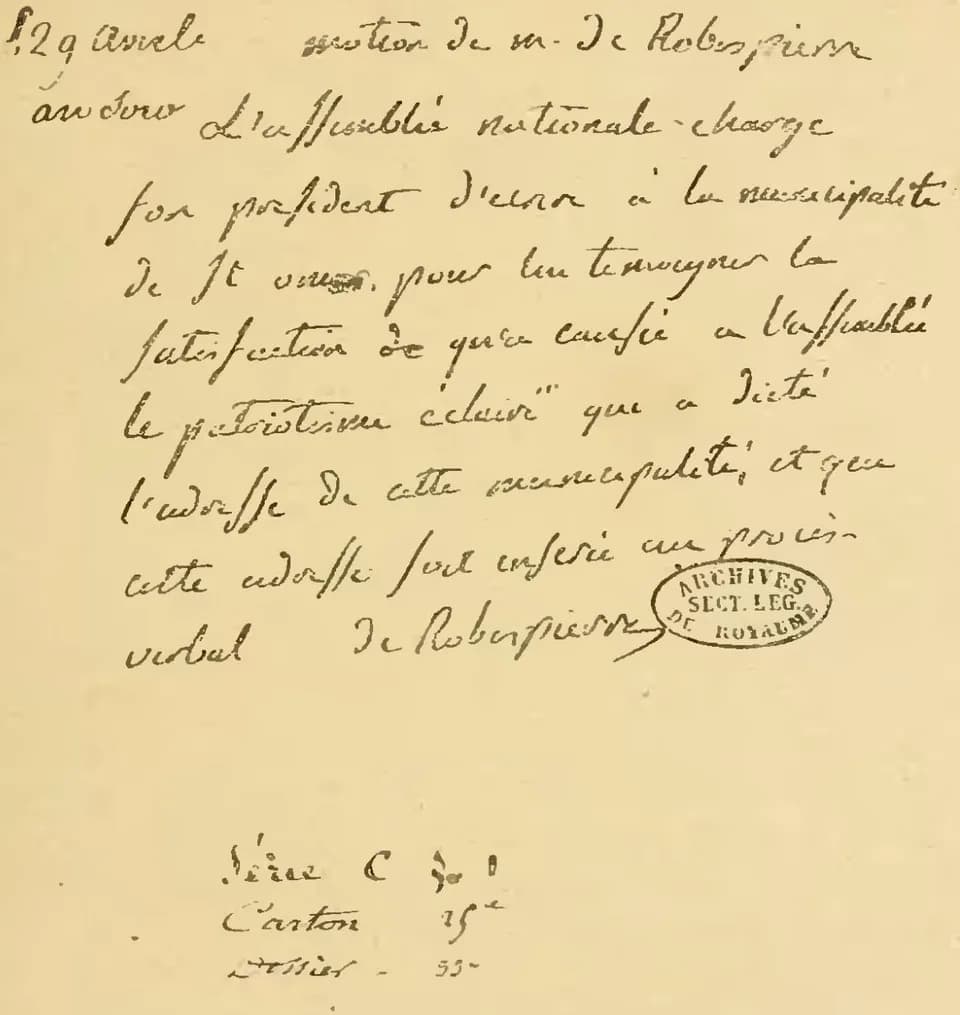 29 motion de m. de Robespierre
L'assemblée nationale charge
son président d'ecrire à la municipalité
de St omer, pour lui temoigner la
satisfaction de qu'a causée a l'assemblée
le patriotisme éclairé qui a dicté
l'adresse de cette municipalité, et que
cette adresse soit inserée au procès-
verbal de Robespierre
ARCHIVES
SECT. LEG.
DU ROYAUME
Série C
Carton 25e
Dossier -